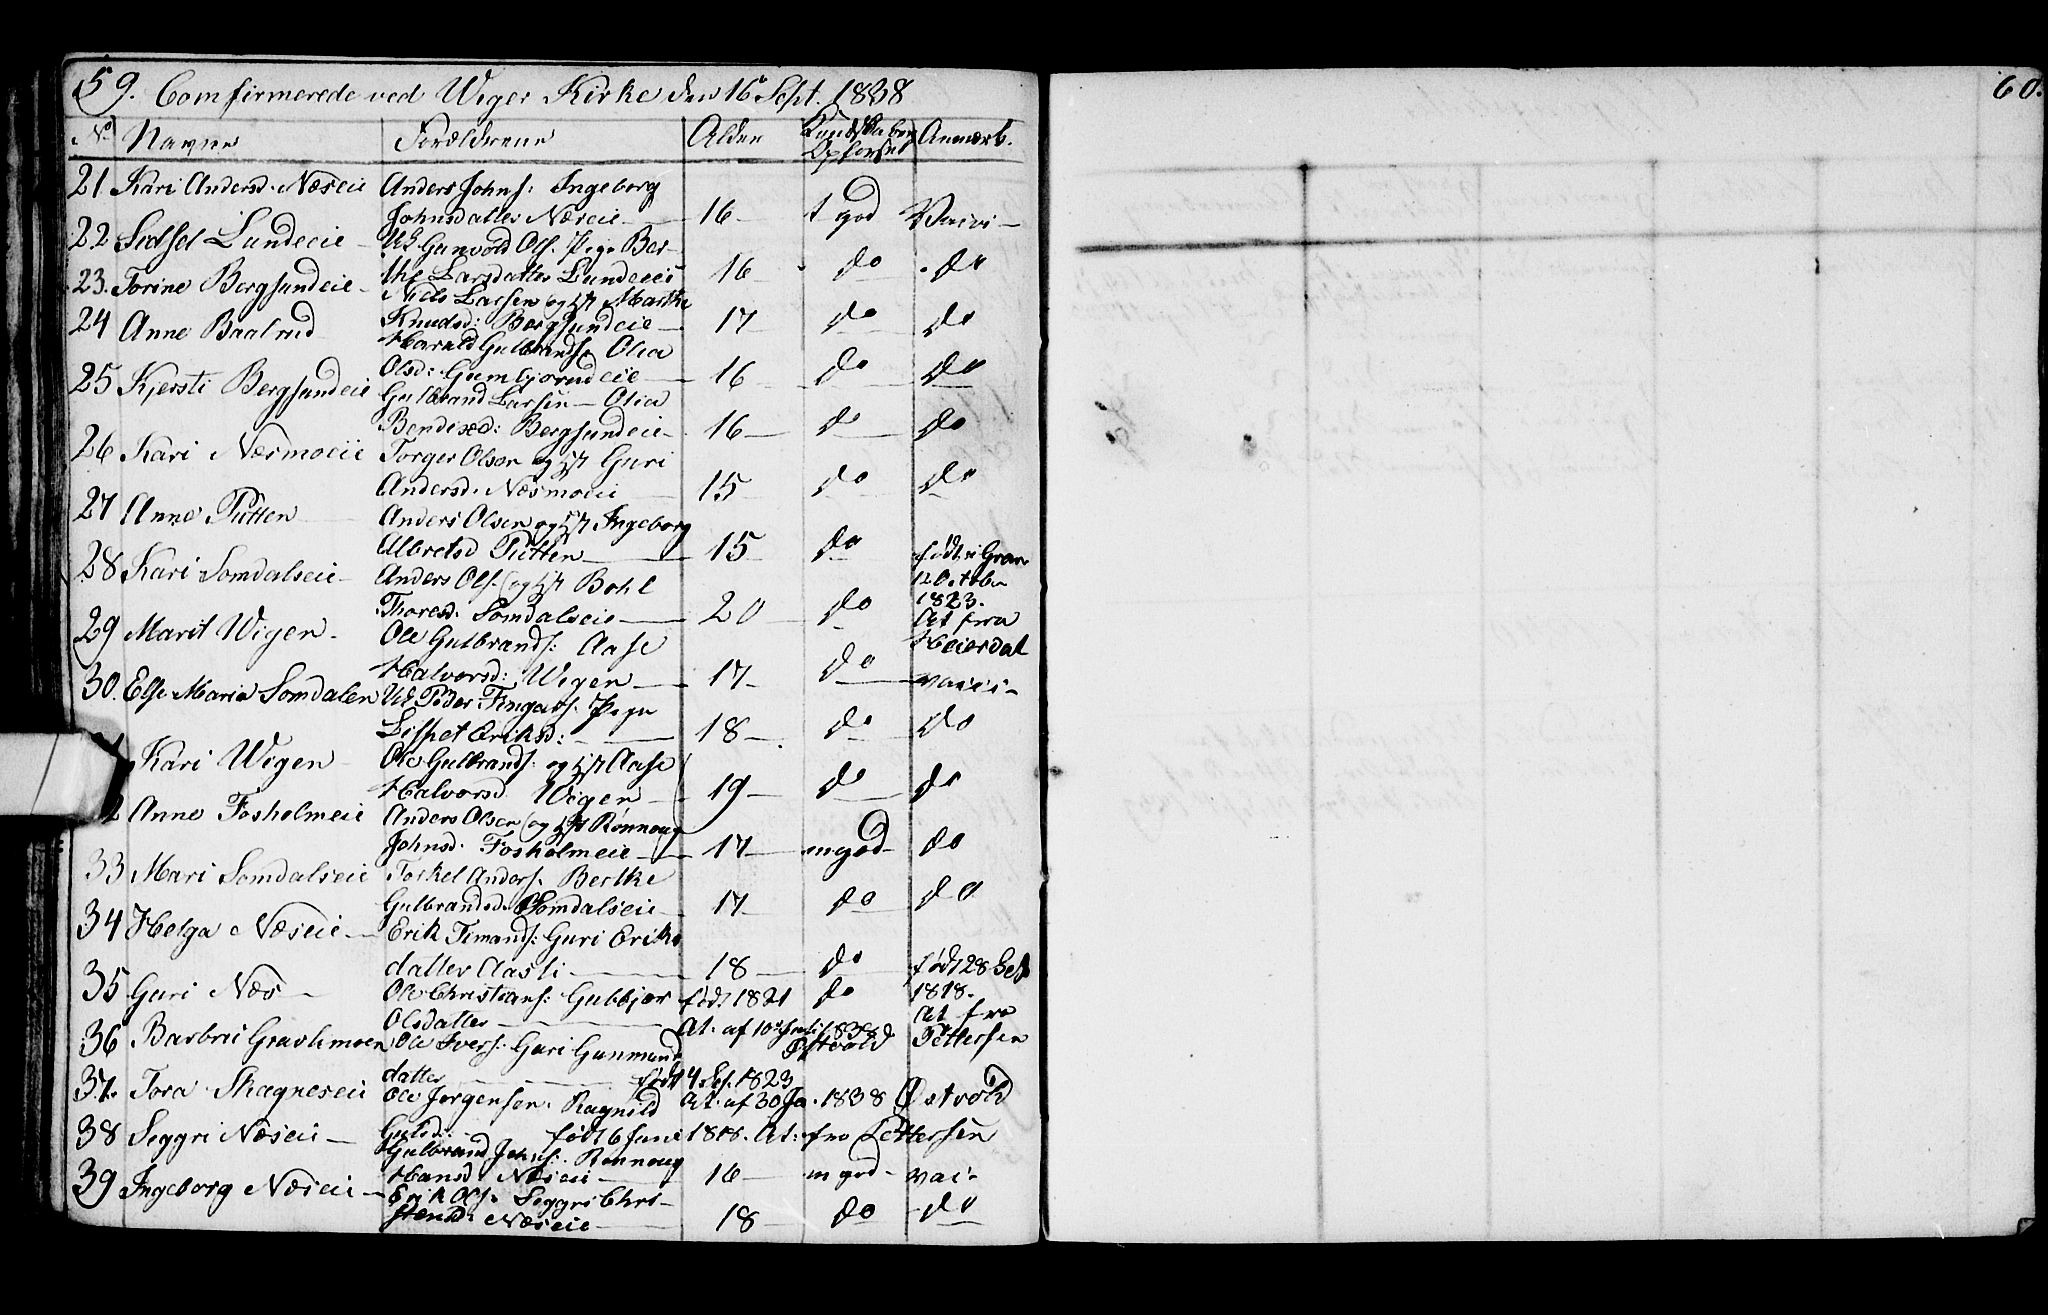 59. Comfirmerede ved Wiger Kirke den 16 Sept. 1838
No Navne Forældrene Alder Kundskaber Opførsel Anmærk.
21 Kari Andersd. Næseie Anders Johns: Ingeborg
Johnsdatter Næseie — 16 — t god Vacci —
22 Sidsel Lundeeie — Gunvold Ols. Pige Ber-
the Larsdatter Lundeeie 16 — do do
23. Torine Bergsundeie — Niels Larsen og Marthe
Knudsd: Bergsundeie — 17 do do
24 Anne Baalrud Harald Gulbrands. Olia
Olsd: Gumbjørudeie — 16 — do do
25 Kjersti Bergsundeie Gulbrand Larsen — Olia
Bendixsd: Bergsundeie — 16 — do do
26 Kari Næsmoeie Torger Olsen og Guri
Andersd. Næsmoeie — 15 — do do
27 Anne Pütten — Anders Olsen og Ingeborg
Albretsd Pütten — 15 do født i Gran
12 October
1823.
28 Kari Somdalseie — Anders Ols. (og Bohl
Thoresd. Somdalseie — 20 do At fra
Heierdal
29 Marit Wigen — Ole Gulbrands: Aase
Halvorsd: Wigen — 17 — do
30. Else Maria Somdalen Peder Fingars. Pige
Lispet Eriksd: — 18 — do do
Kari Wigen — Ole Gulbrands: og Aase
Halvorsd. Wigen — 19 — do do
2 Anne Fosholmeie Anders Olsen (og Rønnoug
Johnsd. Fosholmeie — 17 — mgod — do
33 Mari Somdalseie Torkel Anders. Berthe
Gulbrandsd. Somdalseie — 17 — do do
34 Helga Næseie — Erik Timands: Guri Eriks
datter Aasli — 18 — do født 28
1818.
35 Guri Næs — Ole Christians: Gubbjør født 1821 do At fra
Olsdatter — At. af 10 Juli 1838 Østvold Pettersen
36 Barbrei Graslimoen Ole Ivers: Guri Gunmund
datter — født 4 Sep. 1823
37. Tora Skagneseie Ole Jørgensen. Ragnild At. af 30 Ja. 1838 Østvold
38 Seggri Næseie — født 6 Juni 1818. At: fra Pettersen
Gulbrand Johns: Rønnoug
Hansd. Næseie — 16 — m god — vac —
39 Ingeborg Næseie — Erik Ols. Seggri Chri-
stensd: Næseie — 18 — do do
60.